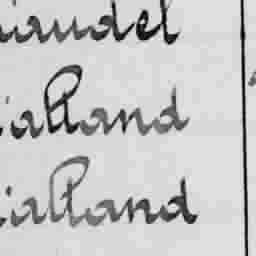 iaudel
ialland
ialland